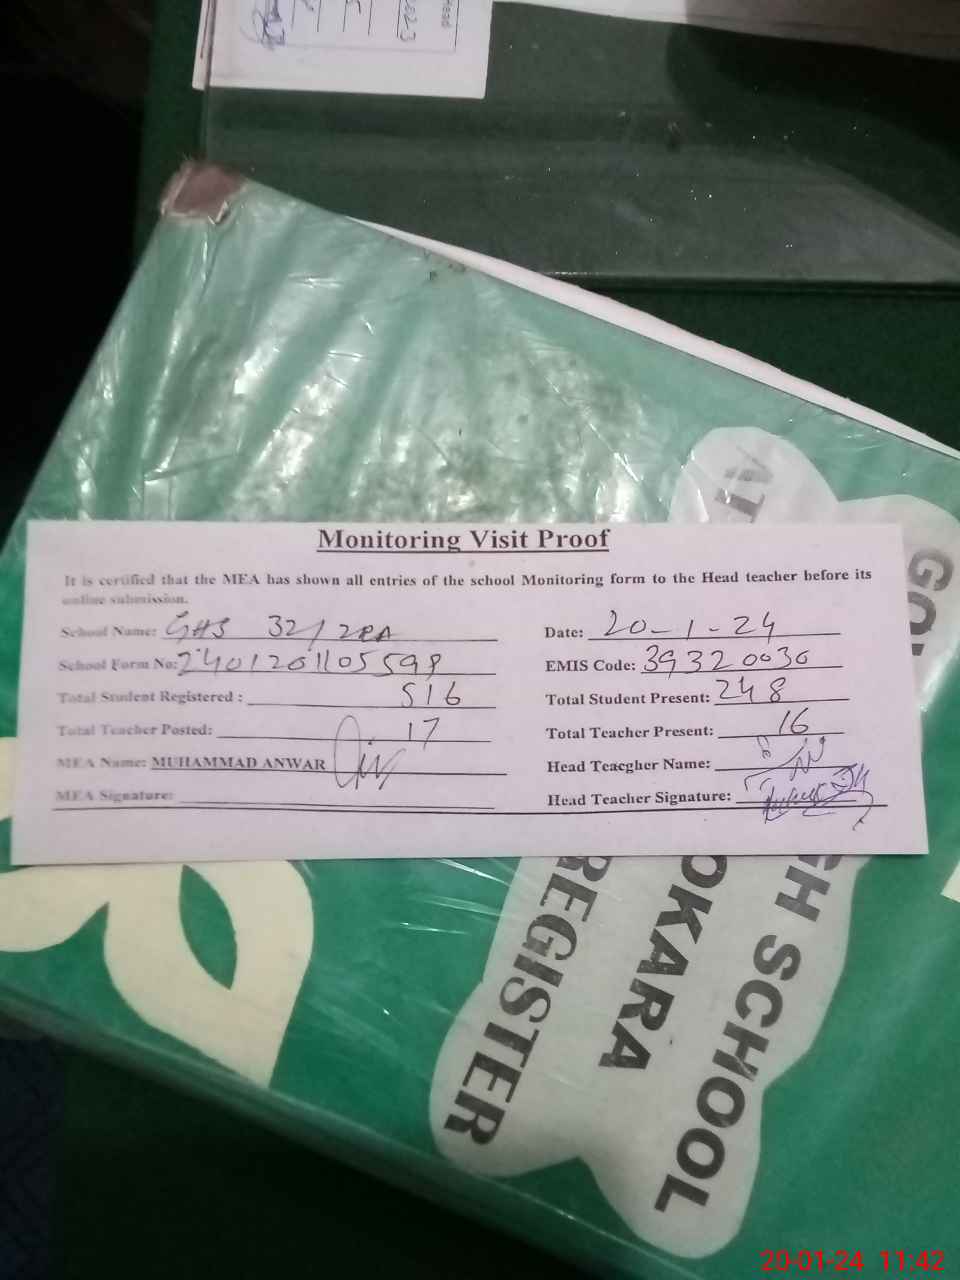 Head
Monitoring Visit Proof
It is certified that the MEA has shown all entries of the school Monitoring form to the Head teacher before its
online submission.
School Name: GHS 32/2RA Date: 20-1-24
School Form No: 2401201105598 EMIS Code: 39320030
Total Student Registered : 516 Total Student Present: 248
Total Teacher Posted: 17 Total Teacher Present: 16
MEA Name: MUHAMMAD ANWAR Head Teacgher Name:
MEA Signature: Head Teacher Signature:
REGISTER
OKARA
GH SCHOOL
20-01-24 11:42